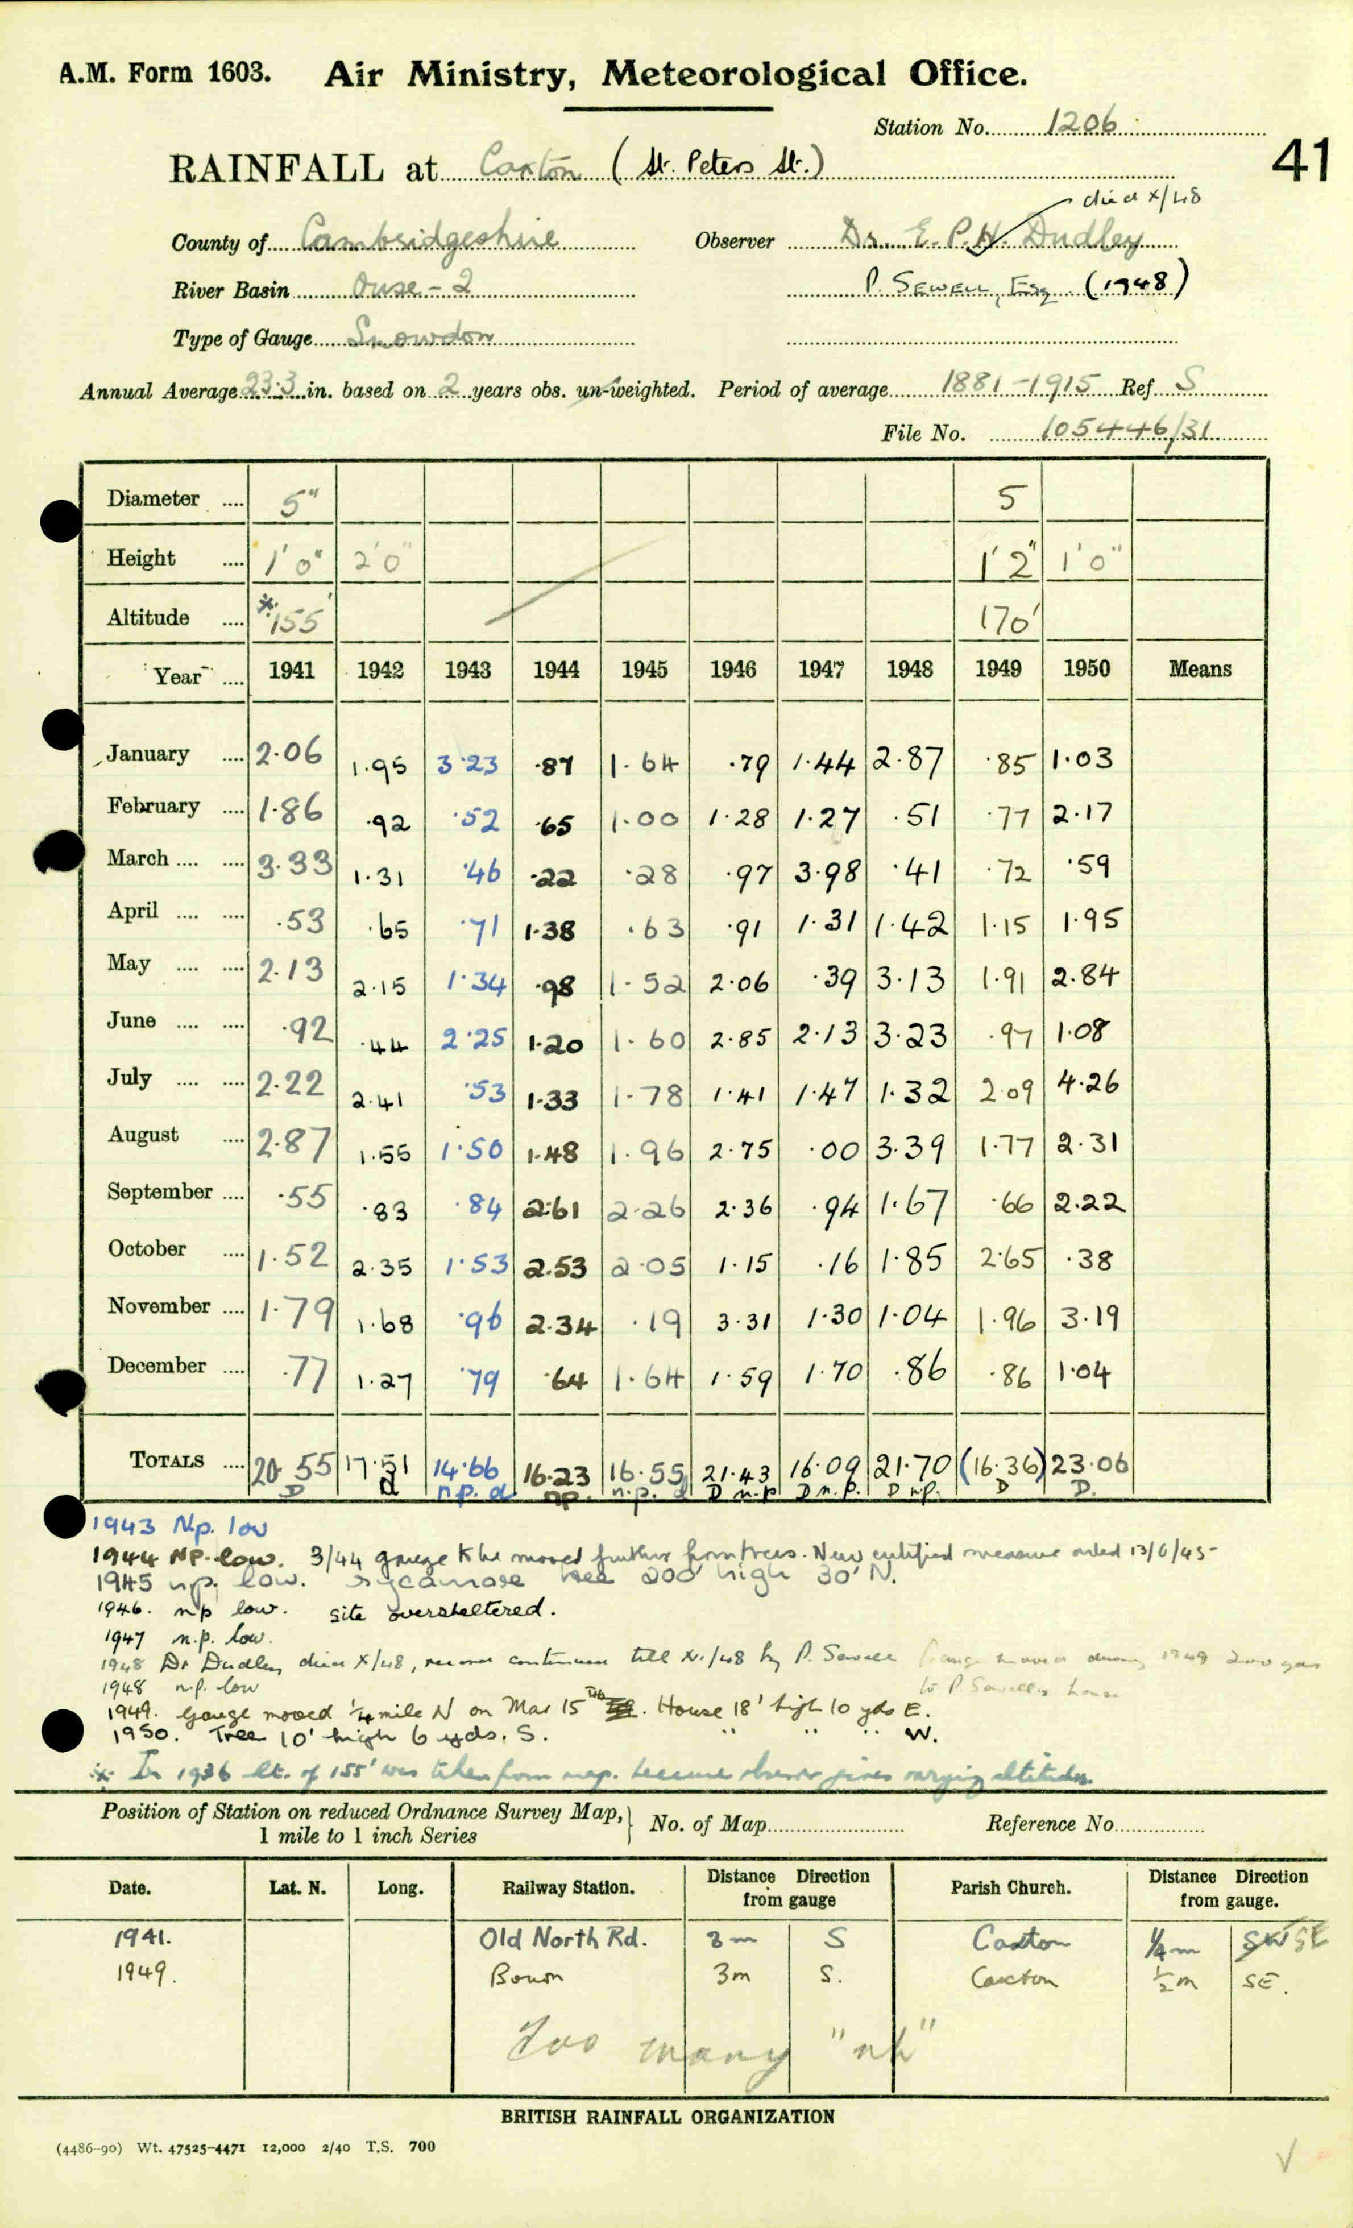 A.M. Form 1603. Air Ministry, Meteorological Office.
Station No. 1206
41
RAINFALL at Caxton (St. Peters St.)
died X/48
County of Cambridgeshire Observer Dr. E. P. H. Dudley
River Basin Ouse - 2 P. SEWELL, Esq (1948)
Type of Gauge Snowdon
Annual Average 23.3 in. based on 2 years obs. un-weighted. Period of average 1881-1915 Ref. S
File No. 105446/31
Diameter .... 5" 5
Height .... 1'0" 2'0" 1'2" 1'0"
Altitude .... *155' 170'
Year .... 1941 1942 1943 1944 1945 1946 1947 1948 1949 1950 Means
January .... 2.06 1.95 3.23 .87 1.64 .79 1.44 2.87 .85 1.03
February .... 1.86 .92 .52 .65 1.00 1.28 1.27 .51 .77 2.17
March .... .... 3.33 1.31 .46 .22 .28 .97 3.98 .41 .72 .59
April .... .... .53 .65 .71 1.38 .63 .91 1.31 1.42 1.15 1.95
May .... .... 2.13 2.15 1.34 .98 1.52 2.06 .39 3.13 1.91 2.84
June .... .... .92 .44 2.25 1.20 1.60 2.85 2.13 3.23 .97 1.08
July .... .... 2.22 2.41 .53 1.33 1.78 1.41 1.47 1.32 2.09 4.26
August .... 2.87 1.55 1.50 1.48 1.96 2.75 .00 3.39 1.77 2.31
September .... .55 .83 .84 2.61 2.26 2.36 .94 1.67 .66 2.22
October .... 1.52 2.35 1.53 2.53 2.05 1.15 .16 1.85 2.65 .38
November .... 1.79 1.68 .96 2.34 .19 3.31 1.30 1.04 1.96 3.19
December .... .77 1.27 .79 .64 1.64 1.59 1.70 .86 .86 1.04
TOTALS .... 20.55 17.51 14.66 16.23 16.55 21.43 16.09 21.70 (16.36) 23.06
D d n.p. d n.p. n.p. d D n.p D n.p. D n.p. D D.
1943 N.p. low
1944 NP. low. 3/44 gauge to be moved further from trees. New certified measure 13/6/45
1945 n.p. low. Sycamore tree 200' high 30' N.
1946. n.p low. site oversheltered.
1947 n.p. low.
1948 Dr Dudley died X/48, record continued till XII/48 by P. Sewell Gauge moved during 1949 200 yds
1948 n.p. low to P. Sewell's house
1949. Gauge moved 1/4 mile N on Mar 15th. House 18' high 10 yds E.
1950. Tree 10' high 6 yds. S. " " " W.
* In 1936 alt. of 155' was taken from map because observer gives varying altitudes.
Position of Station on reduced Ordnance Survey Map, 1 mile to 1 inch Series } No. of Map Reference No.
Date. Lat. N. Long. Railway Station. Distance Direction from gauge Parish Church. Distance Direction from gauge.
1941. Old North Rd. 3m S Caxton 1/4 m SW SE
1949. Bourn 3m S. Caxton 1/2 m SE.
Too many "nh"
BRITISH RAINFALL ORGANIZATION
(4486-90) Wt. 47525-4471 12,000 2/40 T.S. 700